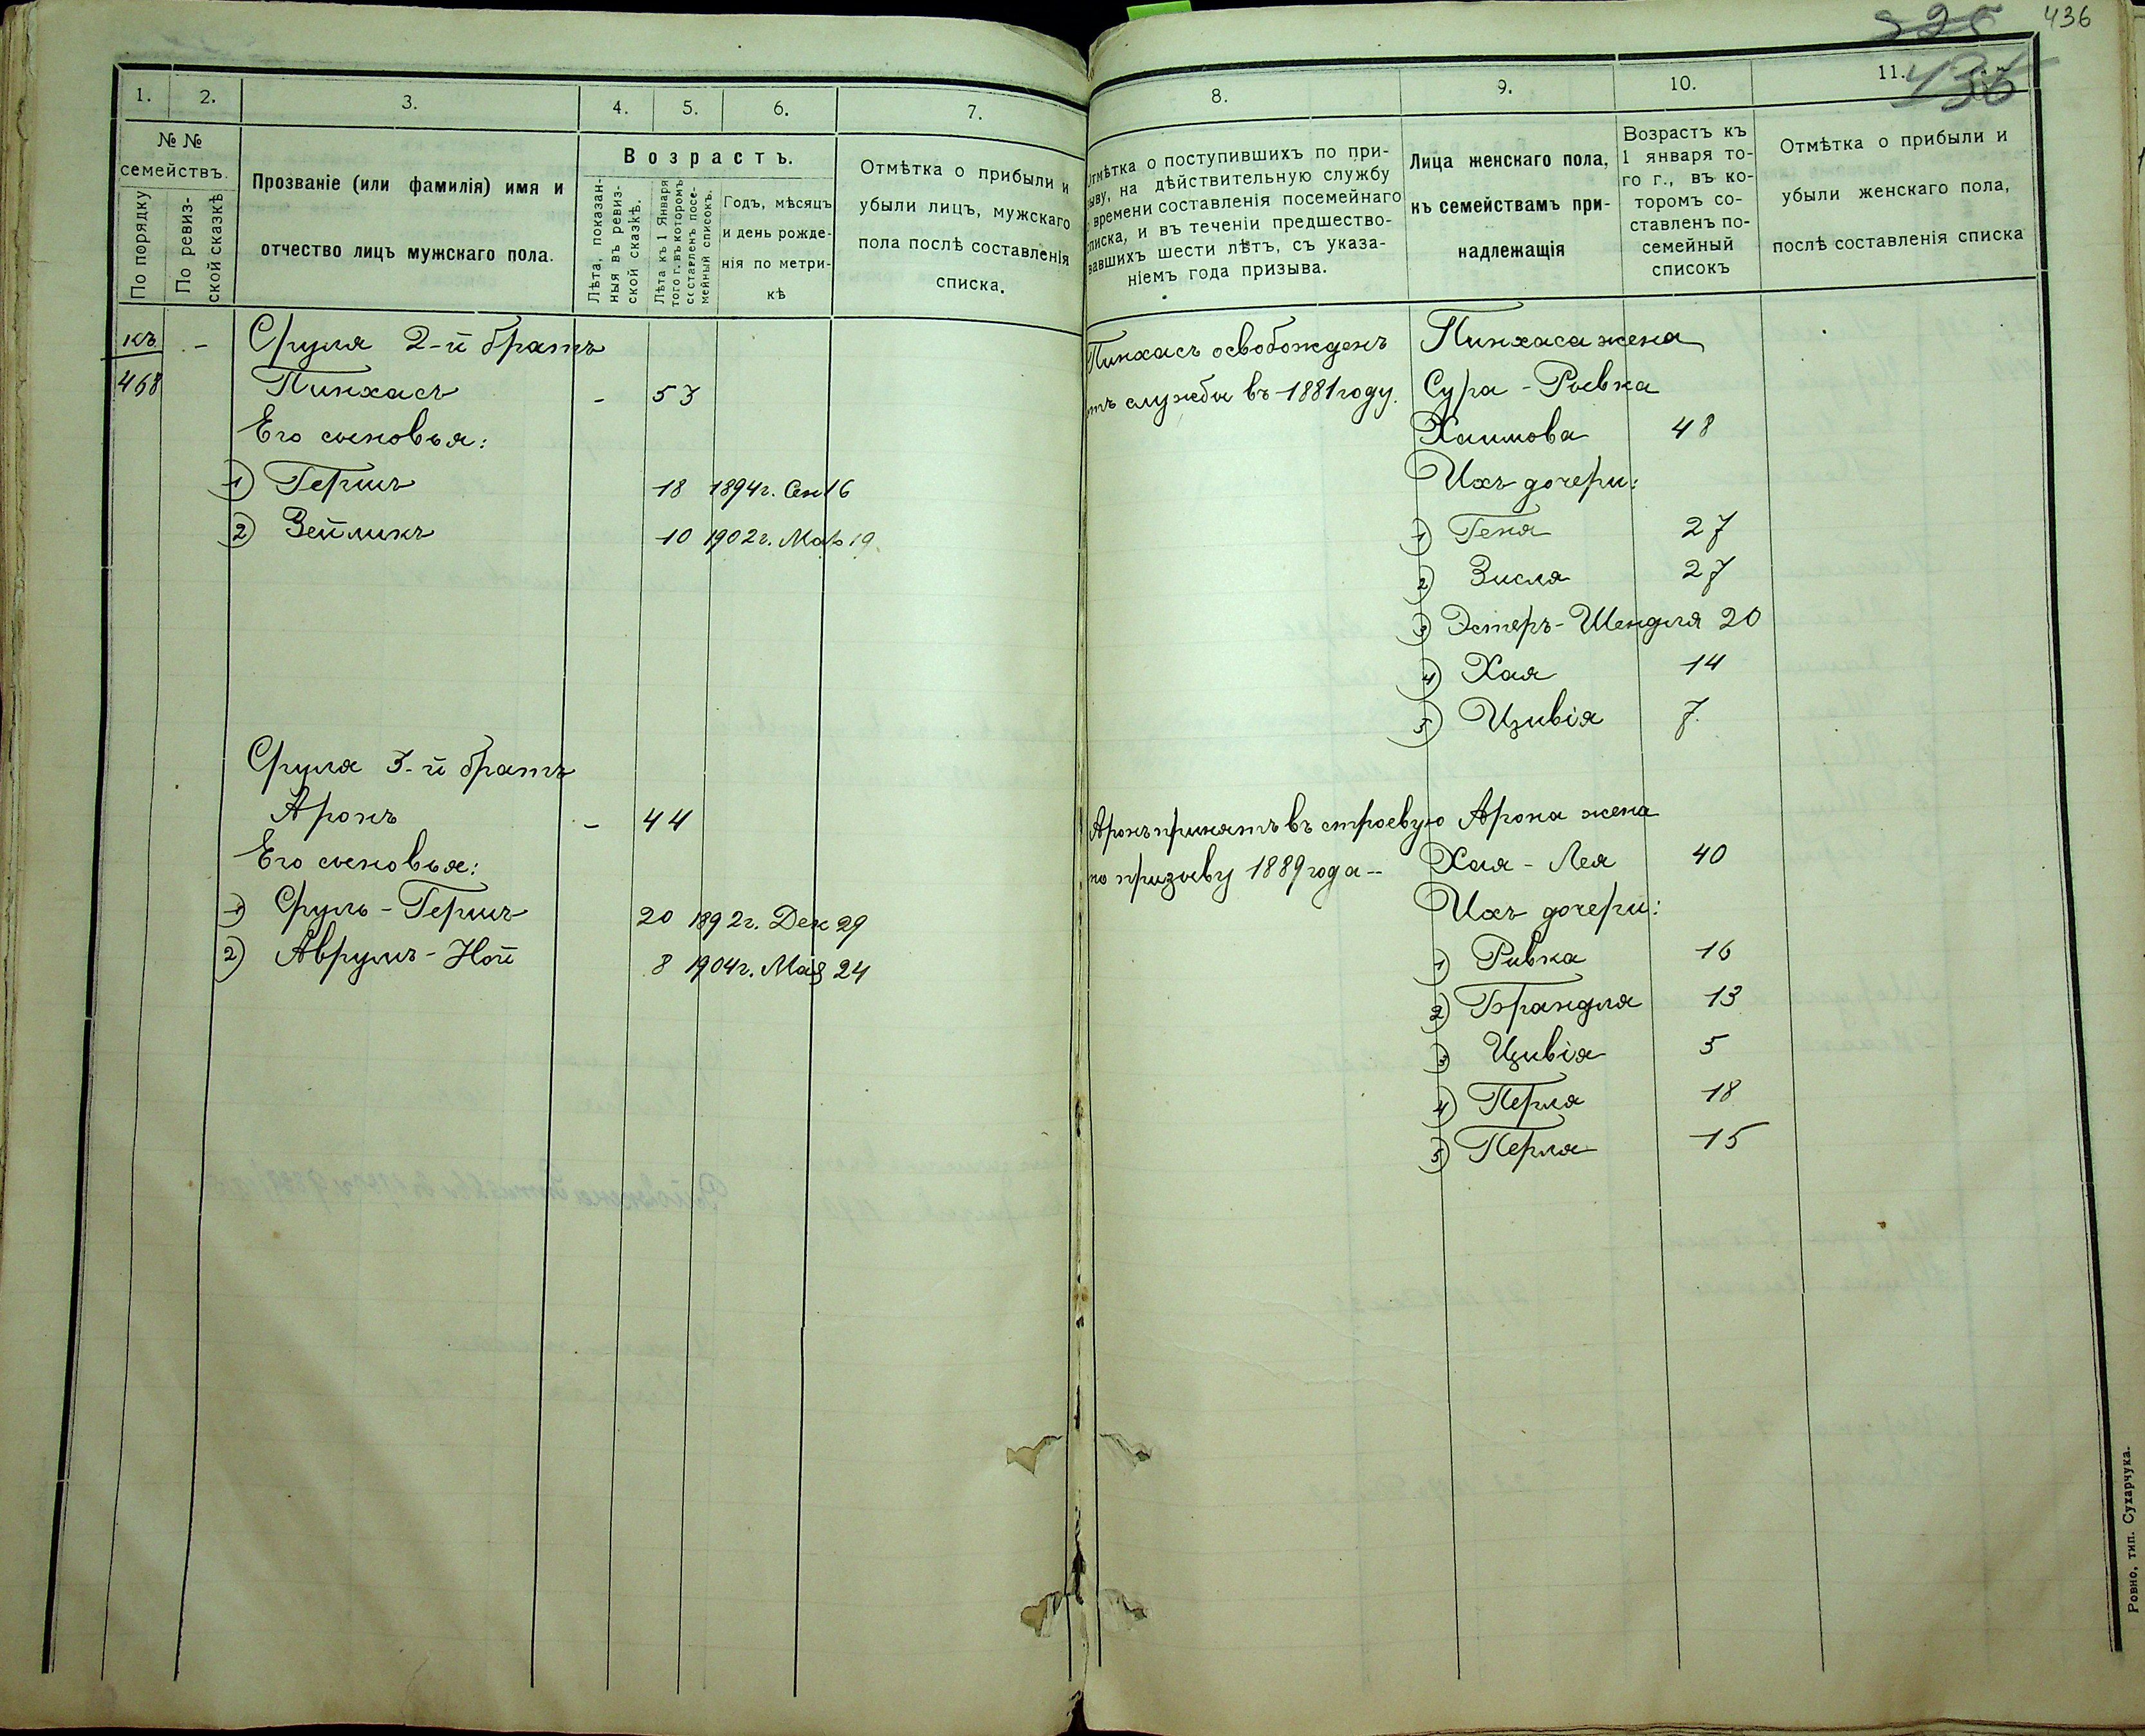 436
1.
2.
3.
4.
5.
6.
7.
№ №
семействъ.
По порядку
По ревиз-
ской сказкѣ
Прозваніе (или фамилія) имя и
отчество лицъ мужскаго пола.
Возрастъ.
Лѣта, показан-
ныя въ ревиз-
ской сказкѣ.
Лѣта къ 1 Января
того г. въ которомъ
составленъ посе-
мейный списокъ.
Годъ, мѣсяцъ
и день рожде-
нія по метри-
кѣ
Отмѣтка о прибыли и
убыли лицъ, мужскаго
пола послѣ составленія
списка.
къ - Сруля 2-й братъ
468 Пинхасъ - 53
Его сыновья:
1) Гершъ 18 1894г. Сен 16
2) Зейликъ 10 1902г. Мар 19.
Сруля 3-й братъ
Аронъ - 44
Его сыновья:
1) Сруль-Гершъ 20 1892г. Дек 29
2) Аврумъ-Ной 8 1904г. Мая 24
8.
9.
10.
11.
436
Отмѣтка о поступившихъ по при-
зыву, на дѣйствительную службу
времени составленія посемейнаго
списка, и въ теченіи предшество-
вавшихъ шести лѣтъ, съ указа-
ніемъ года призыва.
Лица женскаго пола,
къ семействамъ при-
надлежащія
Возрастъ къ
1 января то-
го г., въ ко-
торомъ со-
ставленъ по-
семейный
списокъ
Отмѣтка о прибыли и
убыли женскаго пола,
послѣ составленія списка
Пинхасъ освобожденъ Пинхаса жена
отъ службы въ 1881 году. Сура-Рывка
Хаимова 48
Ихъ дочери:
1) Геня 27
2) Зисля 27
3) Эстеръ-Шендля 20
4) Хая 14
5) Цивія 7.
Аронъ принятъ въ строевую Арона жена
по призыву 1889 года -- Хая-Лея 40
Ихъ дочери:
1) Ривка 16
2) Брандля 13
3) Цивія 5
4) Перля 18
5) Перля 15
Ровно, тип. Сухарчука.